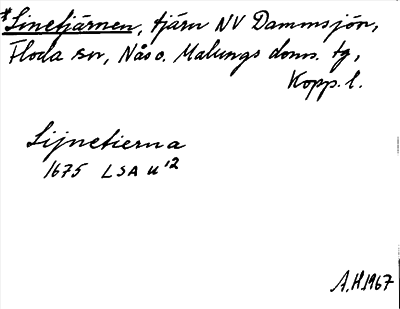 *Sinetjärnen, tjärn NV Dammsjön,
Floda sn, Nås o. Malungs doms. tg,
Kopp. l.
Sijnetierna
1675 LSA U¹²
A.H.1967